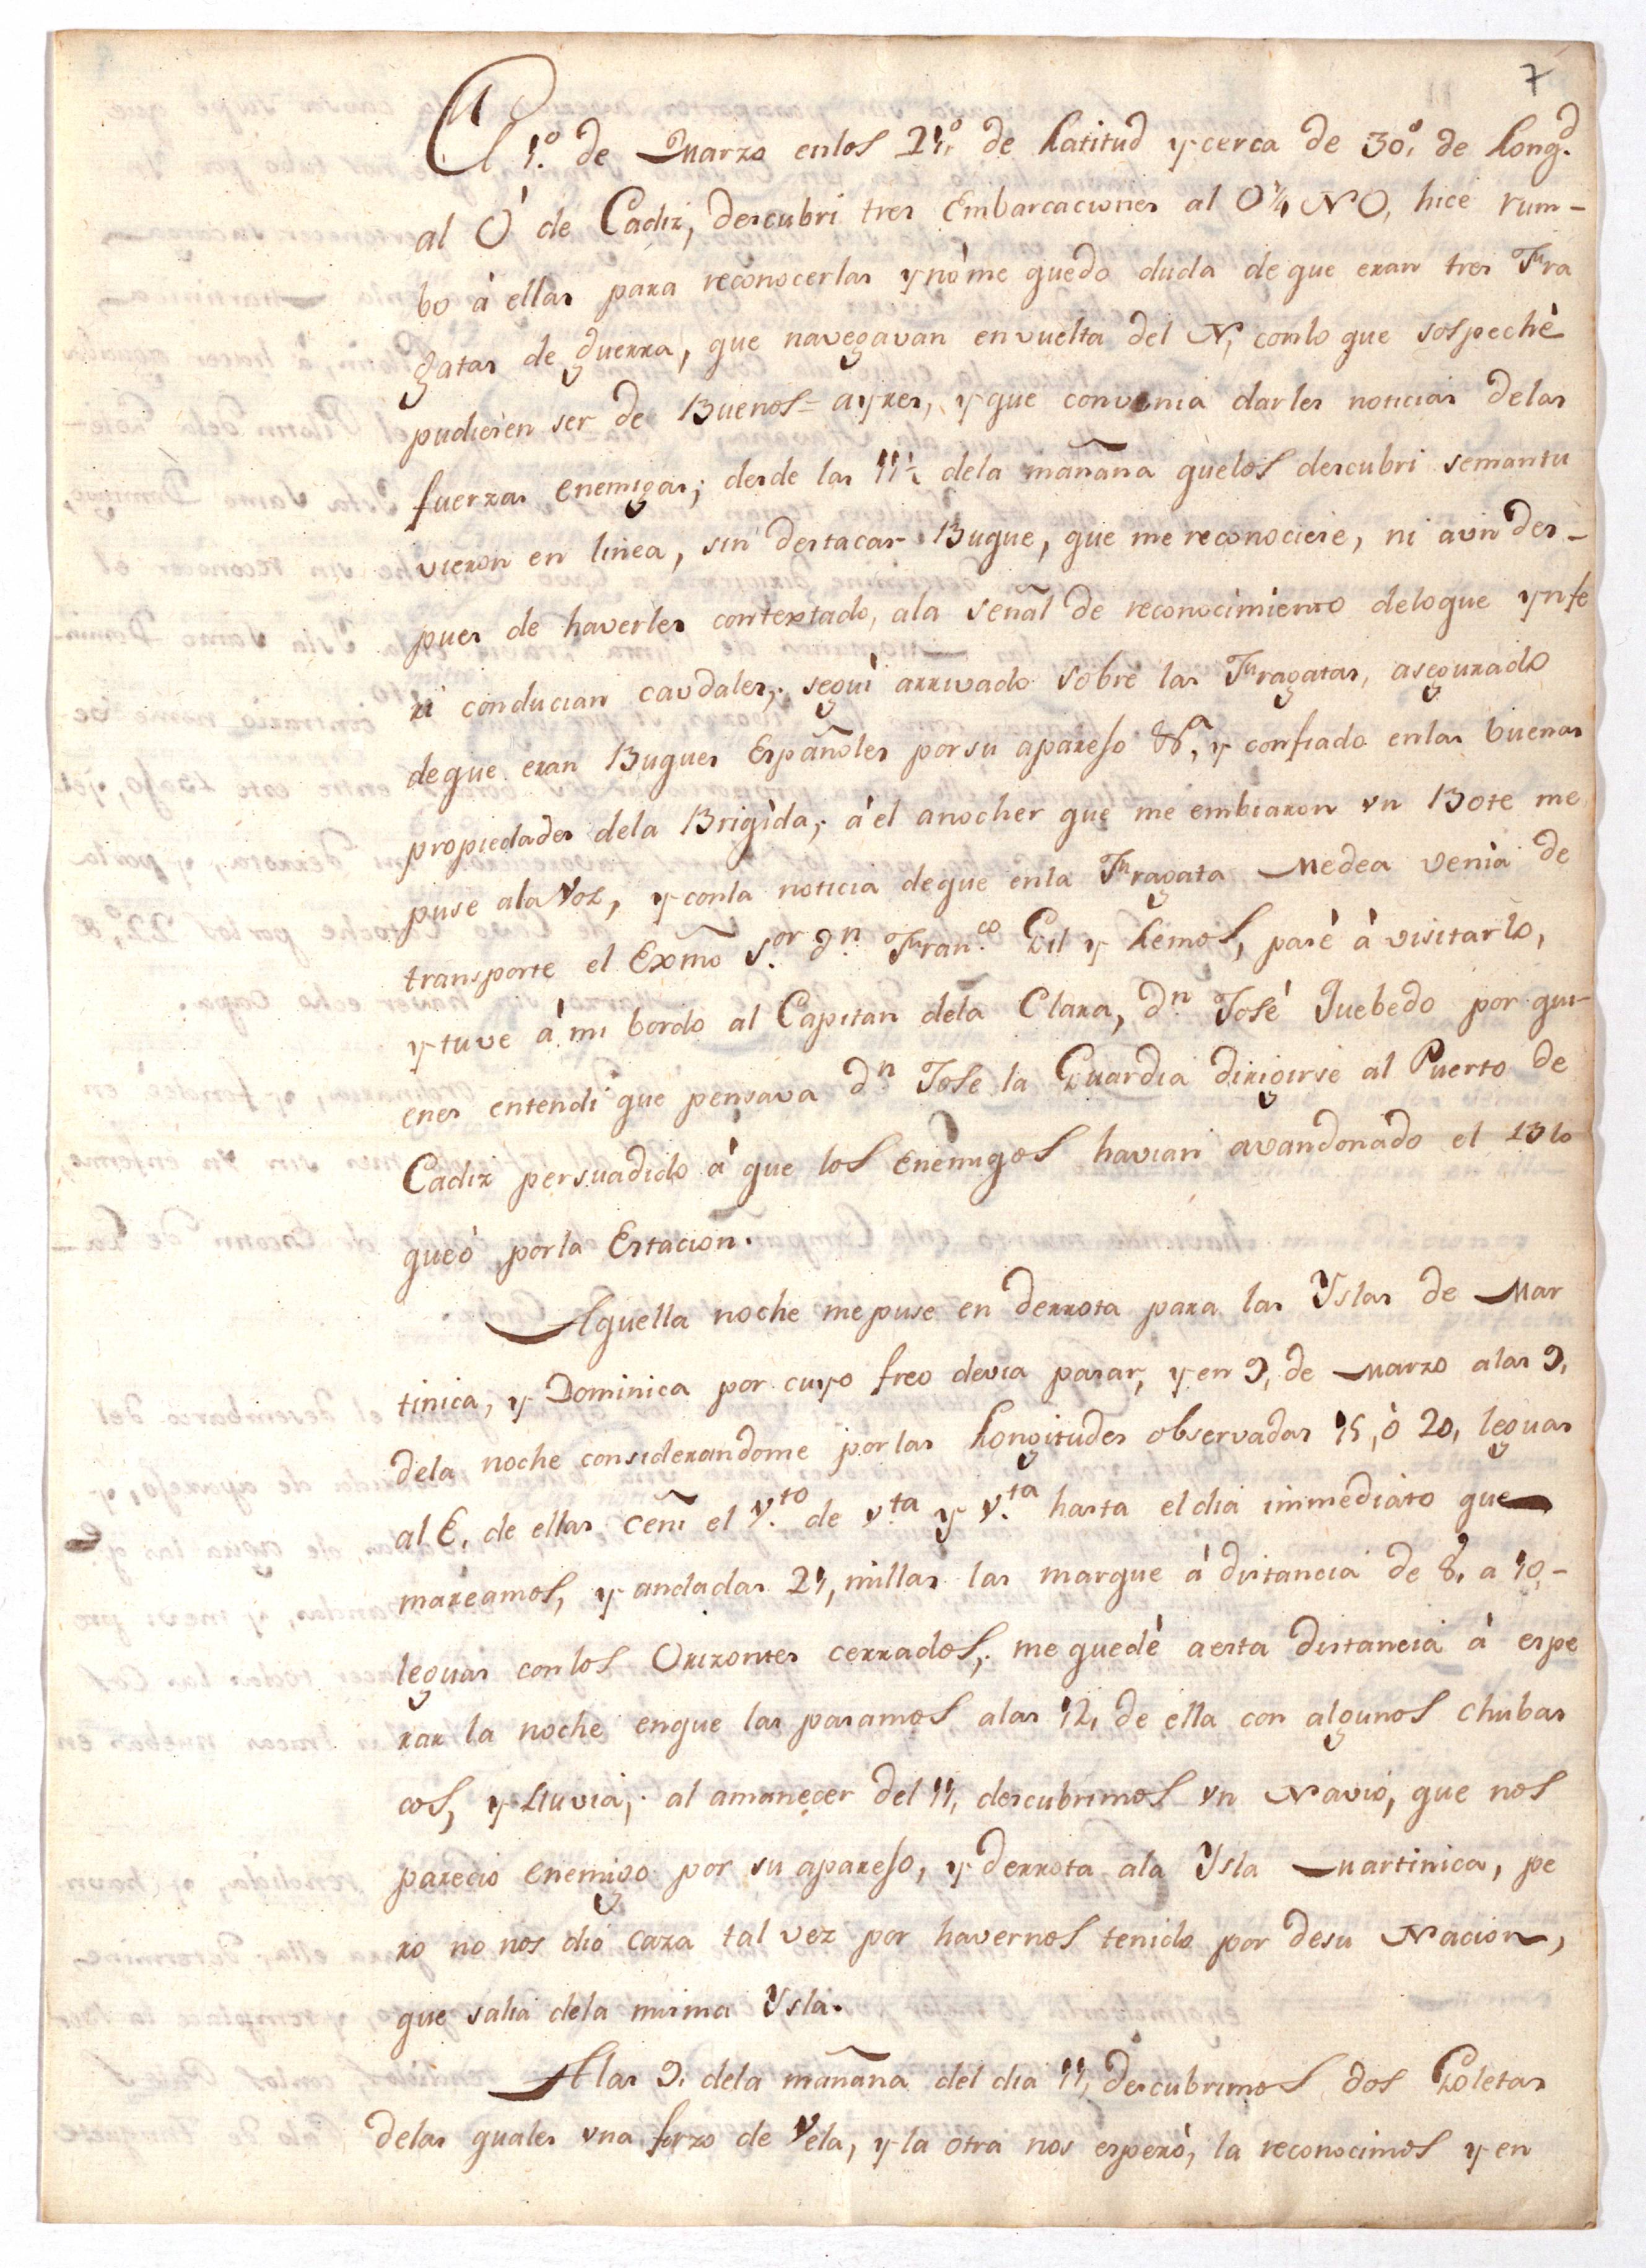 7
El 1.º de Marzo enlos 21º de Latitud y cerca de 30º de Long.d
al O de Cadiz, descubri tres Embarcaciones al O¼NO, hice rum-
bo à ellas para reconocerlas y nò me quedo duda de que eran tres Fra
gatas de guerra, que navegavan en vuelta del N, conlo que sospechè
pudiesen ser de Buenos=ayres, y que convenia darles noticias delas
fuerzas enemigas; desde las 11½ dela mañana quelos descubri semantu
vieron en linea, sin destacar Buque, que me reconociese, ni aun des-
pues de haverles contextado, ala señal de reconocimiento deloque ynfe
ri conducian caudales; segui arrivado sobre las Fragatas, asegurado
deque eran Buques Españoles por su aparejo &.a, y confiado enlas buenas
propiedades dela Brigida; à el anocher que me embiaron un Bote me
puse ala Voz, y conla noticia deque enla Fragata Medea venia de
transporte el Exmo S.or D.n Fran.co Gil y Lemos, pasè à visitarlo,
y tuve à mi bordo al Capitan dela Clara, D.n José Quebedo por qui-
enes entendi que pensava D.n Josè la Guardia dirigirse al Puerto de
Cadiz persuadido à que los Enemigos havian avandonado el Blo
queò por la Estacion.
Aquella noche me puse en derrota para las Yslas de Mar
tinica, y Dominica por cuyo freo devia pasar, y en 9, de Marzo alas 9,
dela noche considerandome por las Longitudes observadas 15, ò 20, leguas
al E. de ellas ceñi el v.to de v.ta y v.ta hasta el dia inmediato que
mareamos, y andadas 21, millas las marque à distancia de 8, a 10,-
leguas con los Orizontes cerrados; me quedè a esta distancia à espe
rar la noche enque las pasamos alas 12, de ella con algunos chubas
cos, y Lluvia; al amanecer del 11, descubrimos un Navio, que nos
parecio enemigo por su aparejo, y derrota ala Ysla Martinica, pe
ro no nos diò caza tal vez por havernos tenido por desu Nacion,
que salia dela misma Ysla.
A las 9, dela mañana del dia 11, descubrimos dos Goletas
delas quales una forzo de Vela, y la otra nos esperò, la reconocimos y en